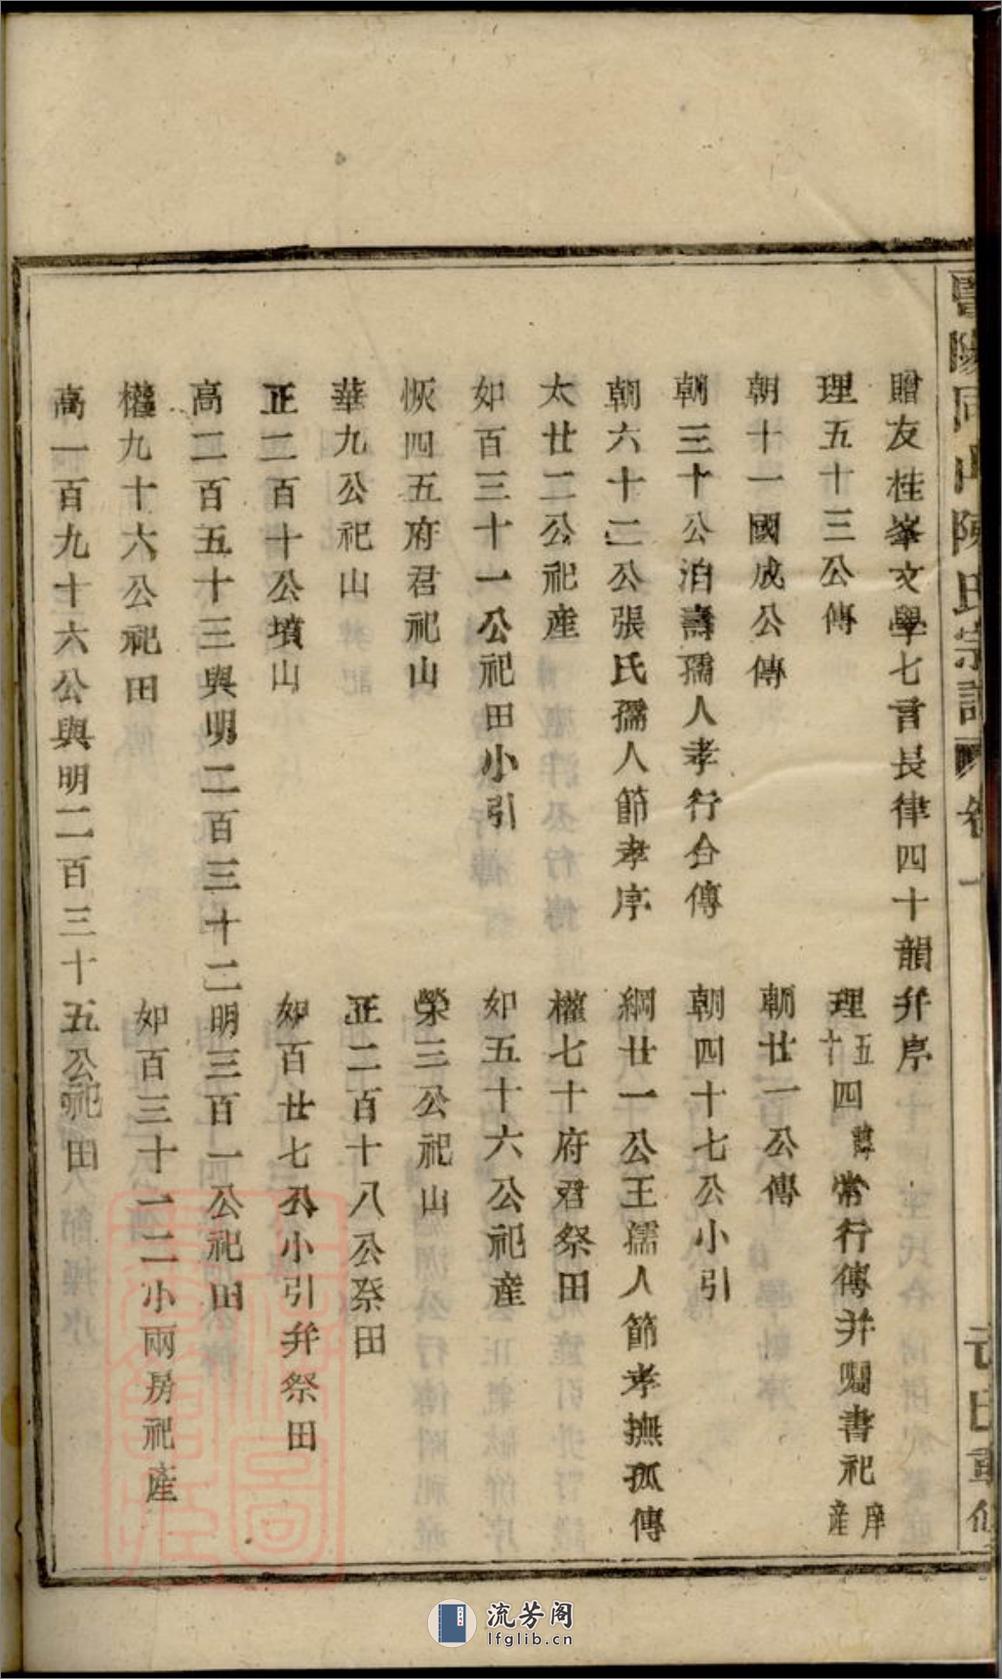 暨陽同山陳氏宗譜 卷一
贈友桂峯文學七言長律四十韻弁序
理五十三公傳
理五十四諱常行傳并囑書祀產序
朝十一國成公傳
朝廿一公傳
朝三十公洎壽孺人孝行合傳
朝四十七公小引
朝六十二公張氏孺人節孝序
綱廿一公王孺人節孝撫孤傳
太廿二公祀產
權七十府君祭田
如百三十一公祀田小引
如五十六公祀產
恢四五府君祀山
榮三公祀山
華九公祀山
正二百十八公祭田
正二百十公墳山
如百廿七公小引弁祭田
高二百五十三與明二百三十二明三百一公祀田
權九十六公祀田
如百三十一二小兩房祀產
高一百九十六公與明二百三十五公祀田
流芳阁
lfglib.cn